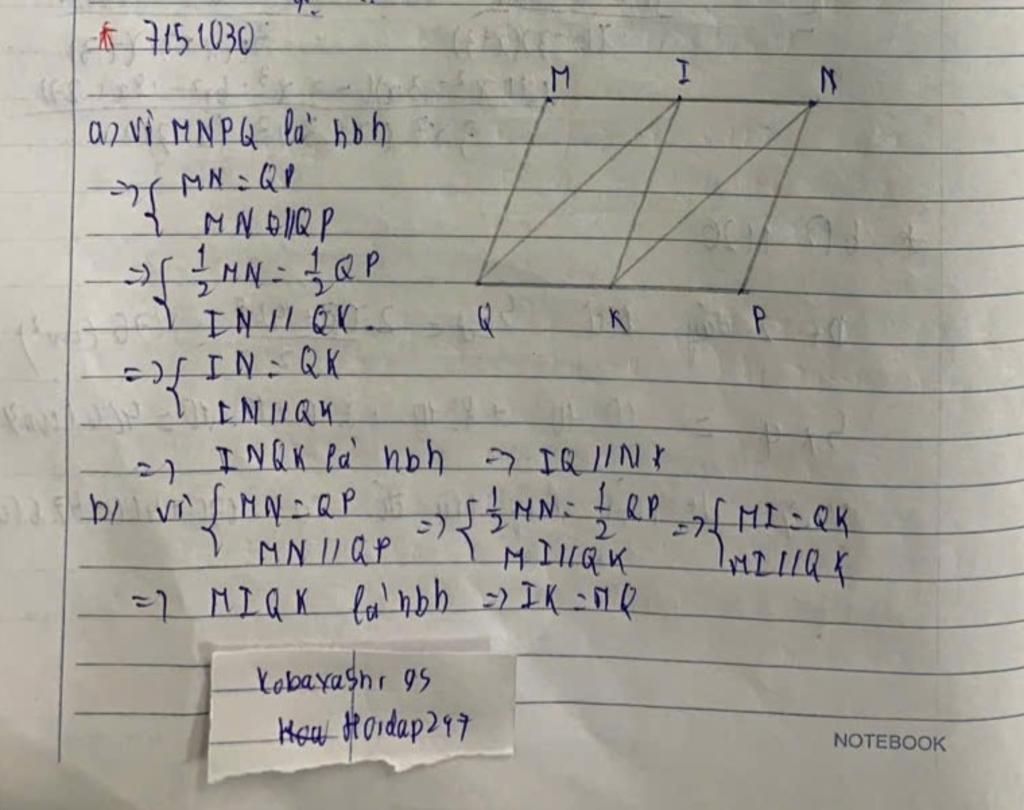 * 7151030
M I N
a) vì MNPQ là hbh
=> { MN = QP
MN // QP
=> { 1/2 MN = 1/2 QP
IN // QK.
Q K P
=> { IN = QK
IN // QK
=> INQK là hbh => IQ // NK
b) vì { MN = QP => { 1/2 MN = 1/2 QP => { MI = QK
MN // QP MI // QK MI // QK
=> MIQK là hbh => IK = MQ
Kobayashi 95
Hoidap247
NOTEBOOK